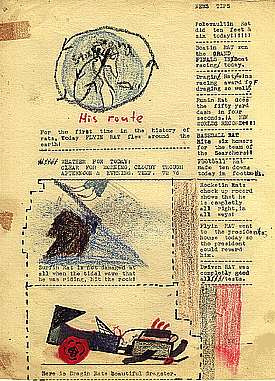 NEWS TIPS
His route
For the first time in the history of
rats, Today FLYIN RAT flew around the
earth!
WEATHER FOR TODAY:
CLEAR FOR RACING, CLOUDY THOUGH
AFTERNOON & EVENING. TEMP.
Surfin Rat is not damaged at
all when the tidal wave that
he was riding, hit the rocks!
Here is Dragin Rats Beautiful dragster.
Polevaultin Rat
did ten feet &
six today!!!!!
Boatin RAT run
the GRAND
FINALS in Boat
racing today.
racing award for
draging so well!
Runin Rat does
the fifty yard
dash in four
seconds.
BASEBALL RAT
Hits six homers
for the team of
the
Football
made ten downs
today in football.
Rocketin Rats
check up record
shows that he
is completly
all right, in
all ways!
Flyin RAT went
to the presidents
house today so
the president
could reward
him.
Driven RAT was